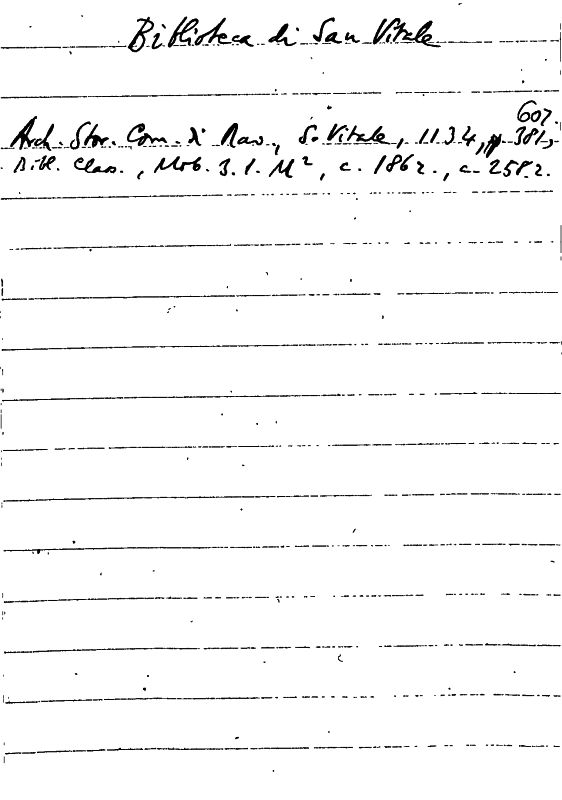 Biblioteca di San Vitale
607.
Arch. Stor. Com. di Rav., S. Vitale, 1134, pp. 381-,
Bibl. Class., Mob. 3.1.M², c. 186 r., c. 258 r.